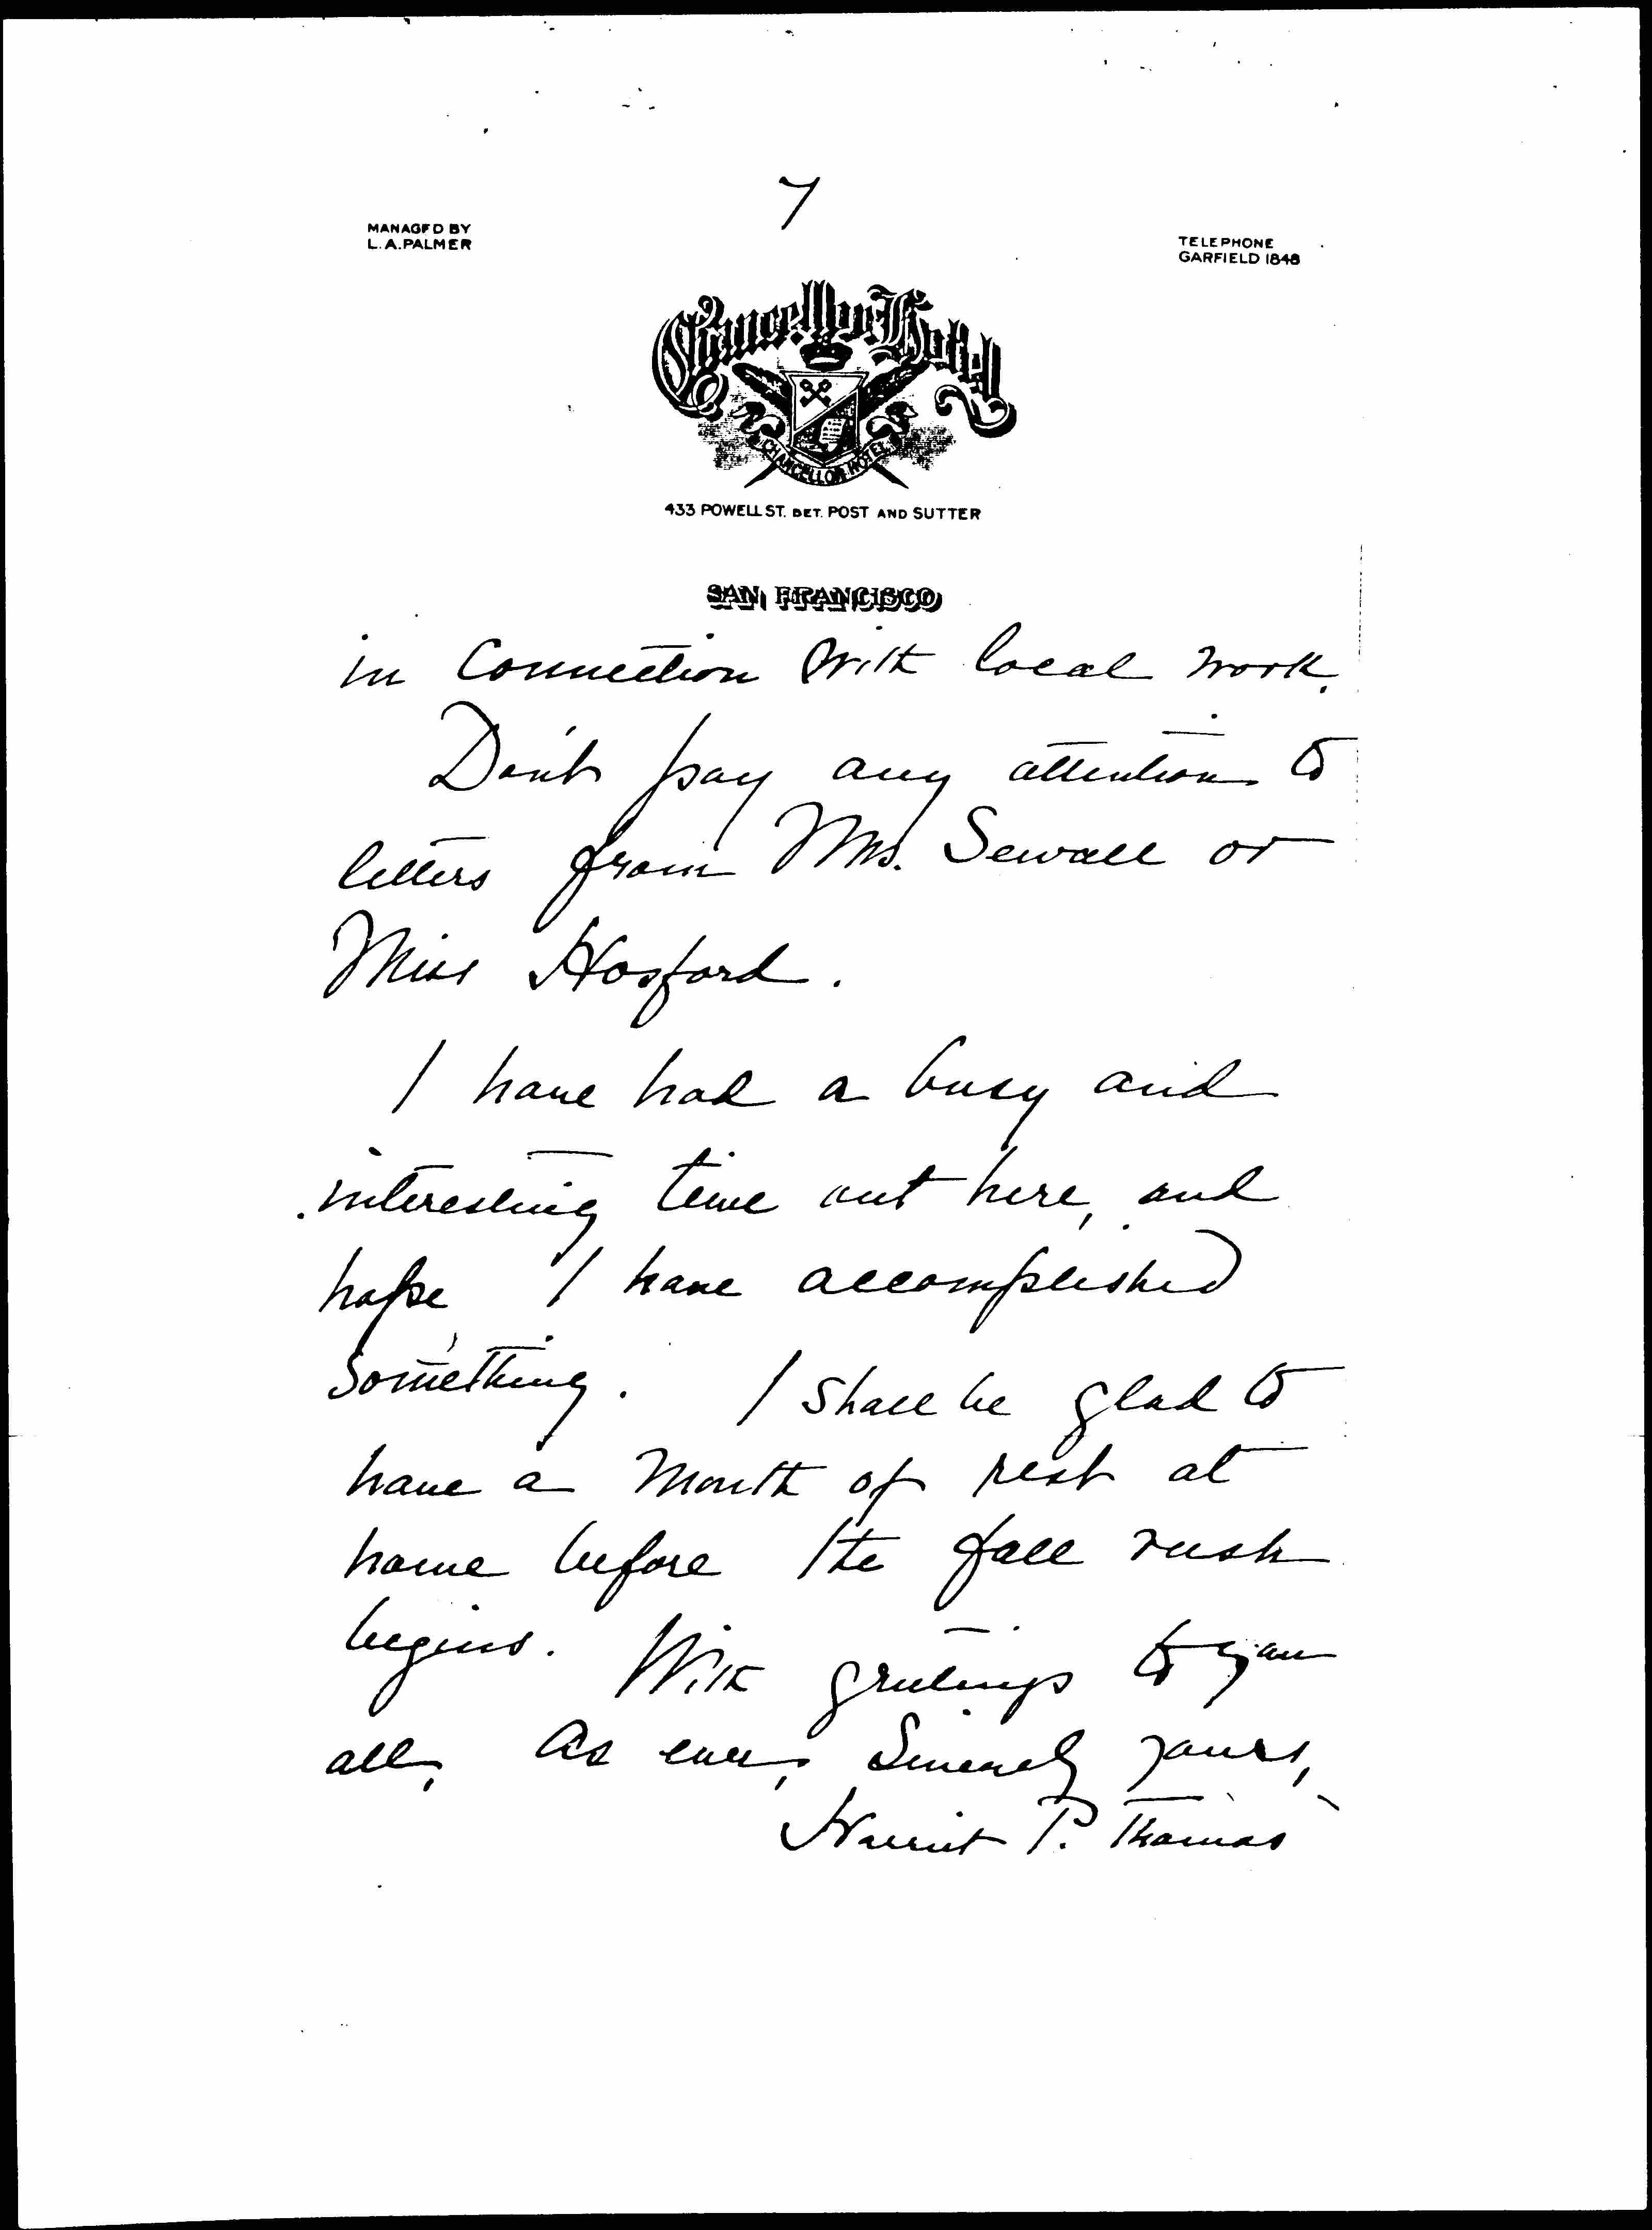 7
MANAGED BY
L.A. PALMER
TELEPHONE
GARFIELD 1848
Chancellor Hotel
CHANCELLOR HOTEL
433 POWELL ST. BET. POST AND SUTTER
SAN FRANCISCO
in connection with local work.
Don't pay any attention to
letters from Mrs. Sewall or
Miss Hosford.
I have had a busy and
interesting time out here, and
hope I have accomplished
something. I shall be glad to
have a month of rest at
home before the fall rush
begins. With greetings to you
all, As ever, Sincerely yours,
Harriet P. Thomas